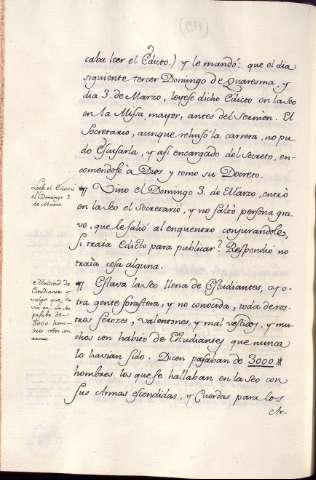 (113)
caba leer el Edicto) y le mandó: que el dia
siguiente tercer Domingo de Quaresma y
dia 3. de Marzo, leyese dicho Edicto en la Seo
en la Misa mayor, antes del Sermon. El
Secretario, aunque rehusó la carrera, no pu-
do Escusarla, y asi encargado del Secreto, en-
comendose á Dios y tomo su Decreto.
¶ Vino el Domingo 3. de Marzo, entró
en la Seo el Secretario, y no faltó persona gra-
ve, que le salió al enquentro conjurandole,
Si traia Edicto para publicar? Respondió no
traia cosa alguna.
el Edicto
el Domingo 3.
de Marzo.
¶ Estava la Seo llena de Estudiantes, y o-
tra gente forastera, y no conocida, toda de ros-
tros ferozes, valentones, y mal vestidos, y mu-
chos con habito de Estudiantes que nunca
lo havian sido. Dicen pasaban de 3000 ¶
hombres, los que se hallaban en la Seo con
sus Armas escondidas, y Cuerdas para los
Ar-
Multitud de
Estudiantes y
que ha-
via en la Seo
pasaba de
3000 hom-
bres todos con
armas.